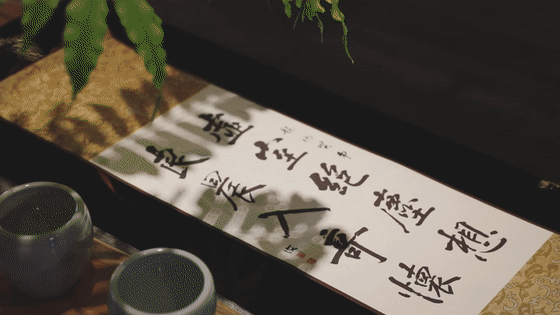 虛室絕塵想
良晨入奇懷